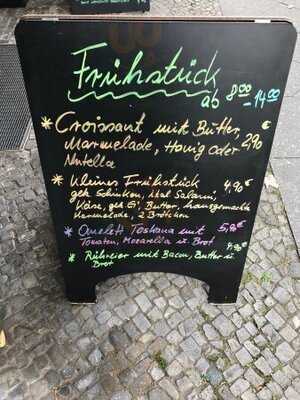 Frühstück
ab 8⁰⁰-14⁰⁰
* Croissant mit Butter,
Marmelade, Honig oder 2,90
Nutella
* Kleines Frühstück 4,90 €
gek Schinken, ital Salami,
Käse, gek Ei, Butter, hausgemachte
Marmelade, 2 Brötchen
* Omelett Toskana mit 5,90 €
Tomaten, Mozarella u. Brot
* Rühreier mit Bacon, Butter u. 4,90 €
Brot